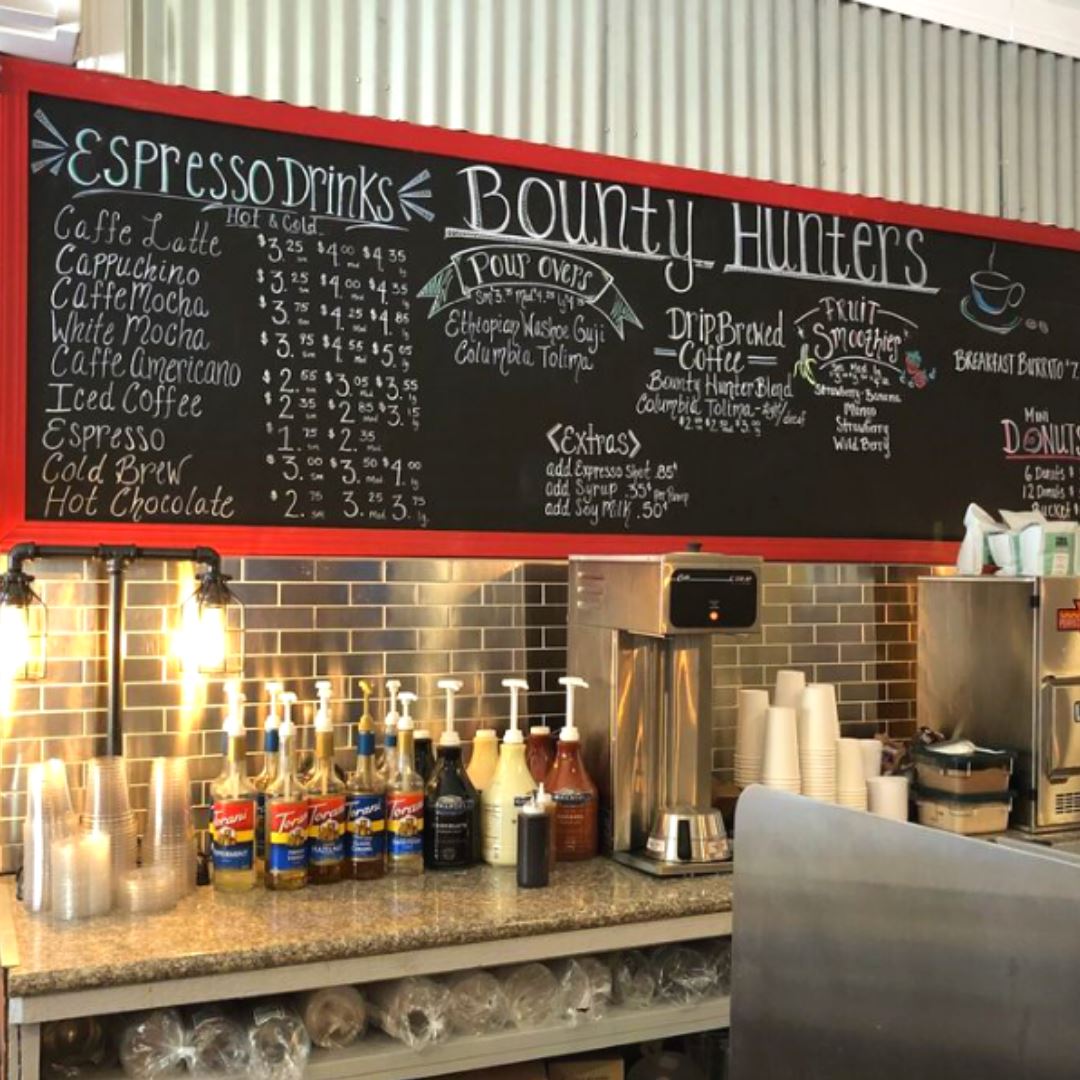 Espresso Drinks
Hot & Cold
Caffe Latte $3.25 sm $4.00 Med $4.35 lg
Cappuchino $3.25 sm $4.00 Med $4.35 lg
Caffe Mocha $3.75 sm $4.25 Med $4.85 lg
White Mocha $3.95 sm $4.55 Med $5.05 lg
Caffe Americano $2.55 sm $3.05 Med $3.55 lg
Iced Coffee $2.35 sm $2.85 Med $3.15 lg
Espresso $1.75 $2.35
Cold Brew $3.00 sm $3.50 Med $4.00 lg
Hot Chocolate $2.75 sm 3.25 Med 3.75 lg
Bounty Hunters
Pour Overs
Ethiopian Washoe Guji
Columbia Tolima
Drip Brewed
Coffee
Bounty Hunter Blend
Columbia Tolima -
Fruit
Smoothies
Sm Med lg
Strawberry-Banana
Mango
Strawberry
Wild Berry
<Extras>
add Expresso Shot .85¢
add Syrup .35¢ per Pump
add Soy Milk .50¢
BREAKFAST BURRITO
Mini
DONUTS
6 Donuts $
12 Donuts $
Bucket $
Torani
PEPPERMINT
Torani
Torani
HAZELNUT
Torani
Torani